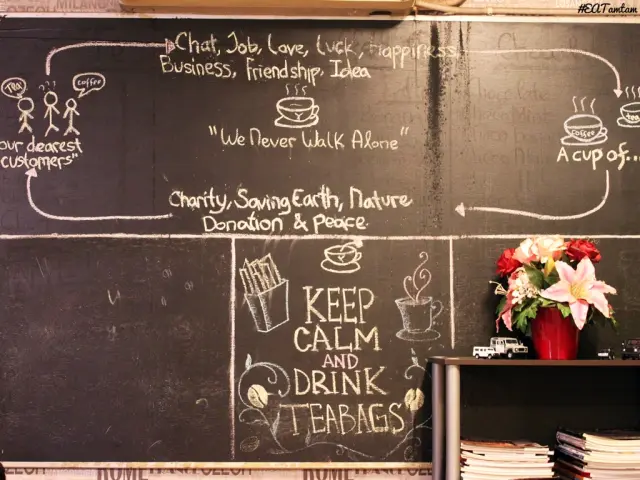 #EATamtam
MILANO
Chat, Job, Love, Luck, Happiness
Business, Friendship, Idea
Tea
???
coffee
our dearest
customers"
"We Never Walk Alone"
coffee
tea
A cup of...
Charity, Saving Earth, Nature
Donation & Peace
KEEP
CALM
AND
DRINK
TEABAGS
ROME